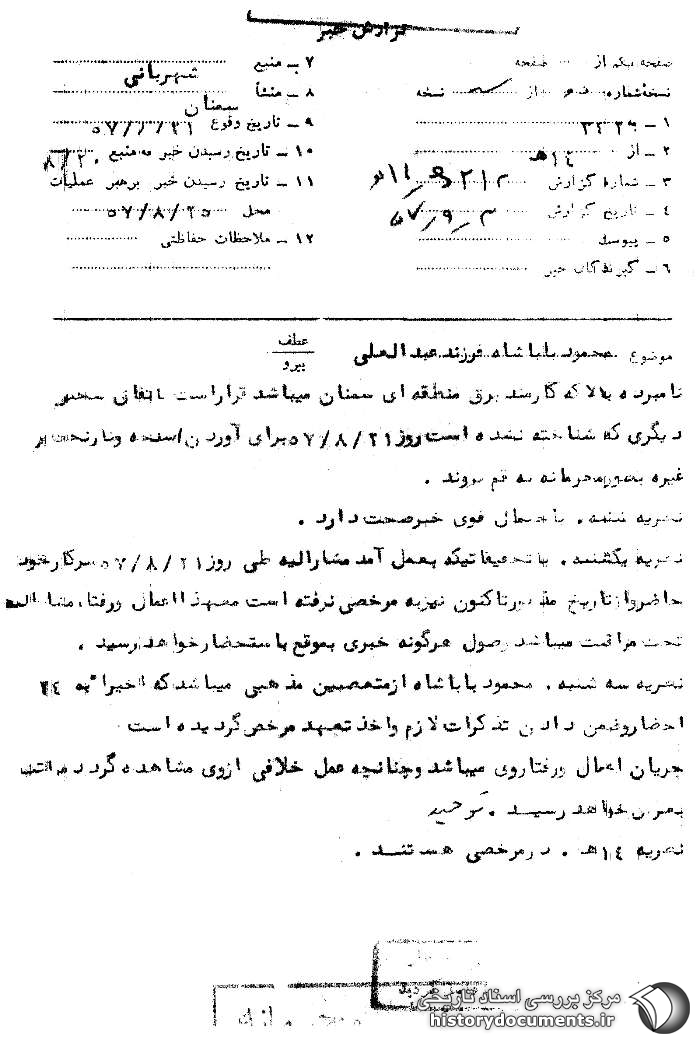 گزارش خبر
صفحه یکم از صفحه
نسخه شماره از نسخه
۱ ــ
۲ ــ از ۱۴ هـ
۳ ــ شماره گزارش
۴ ــ تاریخ گزارش
۵ ــ پیوست
۶ ــ گیرندگان خبر
۷ ــ منبع
شهربانی
۸ ــ منشأ
سمنان
۹ ــ تاریخ وقوع
۱۰ ــ تاریخ رسیدن خبر به منبع
۱۱ ــ تاریخ رسیدن خبر برهبر عملیات
محل ۵۷/۸/۲۵
۱۲ ــ ملاحظات حفاظتی
موضوع محمود باباشاه فرزند عبدالعلی
عطف
پیرو
نامبرده بالا که کارمند برق منطقه ای سمنان میباشد قرار است باتفاق
دیگری که شناخته نشده است روز ۵۷/۸/۲۱ برای آوردن اسلحه ونارنجک و
غیره بصورمحرمانه به قم بروند .
نظریه شنبه . باحتمال قوی خبرصحت دارد .
نظریه یکشنبه . باتحقیقاتیکه بعمل آمد مشارالیه طی روز ۵۷/۸/۲۱ سرکارخود
حاضرواز تاریخ تاکنون نیزبه مرخصی نرفته است معهذا اعمال ورفتار مشارالیه
تحت مراقبت میباشد وصول هرگونه خبری بموقع باستحضارخواهد رسید .
نظریه سه شنبه . محمود باباشاه ازمتعصبین مذهبی میباشدکه اخیرا به
احضاروضمن دادن تذکرات لازم واخذ تعهد مرخص گردیده است
جریان اعمال ورفتاروی میباشد وچنانچه عمل خلافی ازوی مشاهده گردد مراتب
بعرض خواهد رسید .
نظریه ۱۴هـ . درمرخصی هستند .
مرکز بررسی اسناد تاریخی
historydocuments.ir